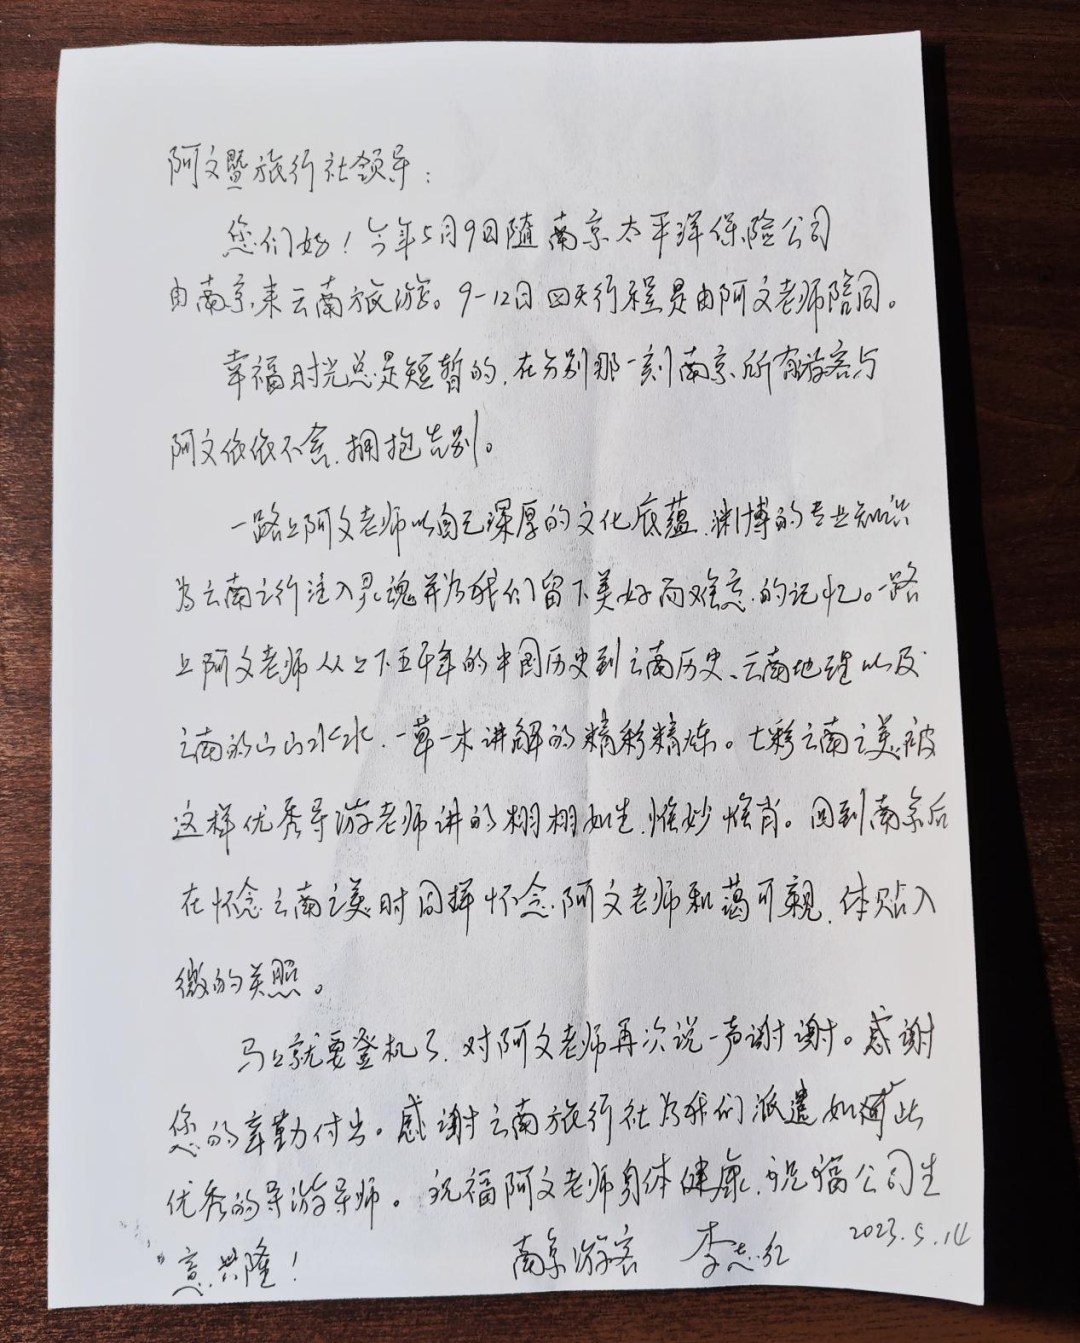 阿文暨旅行社领导：
您们好！今年5月9日随南京太平洋保险公司
由南京来云南旅游。9-12日四天行程是由阿文老师陪同。
幸福时光总是短暂的，在分别那一刻南京所有游客与
阿文依依不舍，拥抱告别。
一路上阿文老师以自己深厚的文化底蕴，渊博的专业知识
为云南之行注入灵魂并为我们留下美好而难忘的记忆。一路
上阿文老师从上下五千年的中国历史到云南历史、云南地理以及
云南的山山水水，一草一木讲解的精彩精炼。七彩云南之美被
这样优秀导游老师讲的栩栩如生，惟妙惟肖。回到南京后
在怀念云南之美时同样怀念阿文老师和蔼可亲，体贴入
微的关照。
马上就要登机了，对阿文老师再次说一声谢谢。感谢
您的辛勤付出。感谢云南旅行社为我们派遣如此
优秀的导游导师。祝福阿文老师身体健康，祝福公司生
意兴隆！
南京游客 李志红 2023.5.14